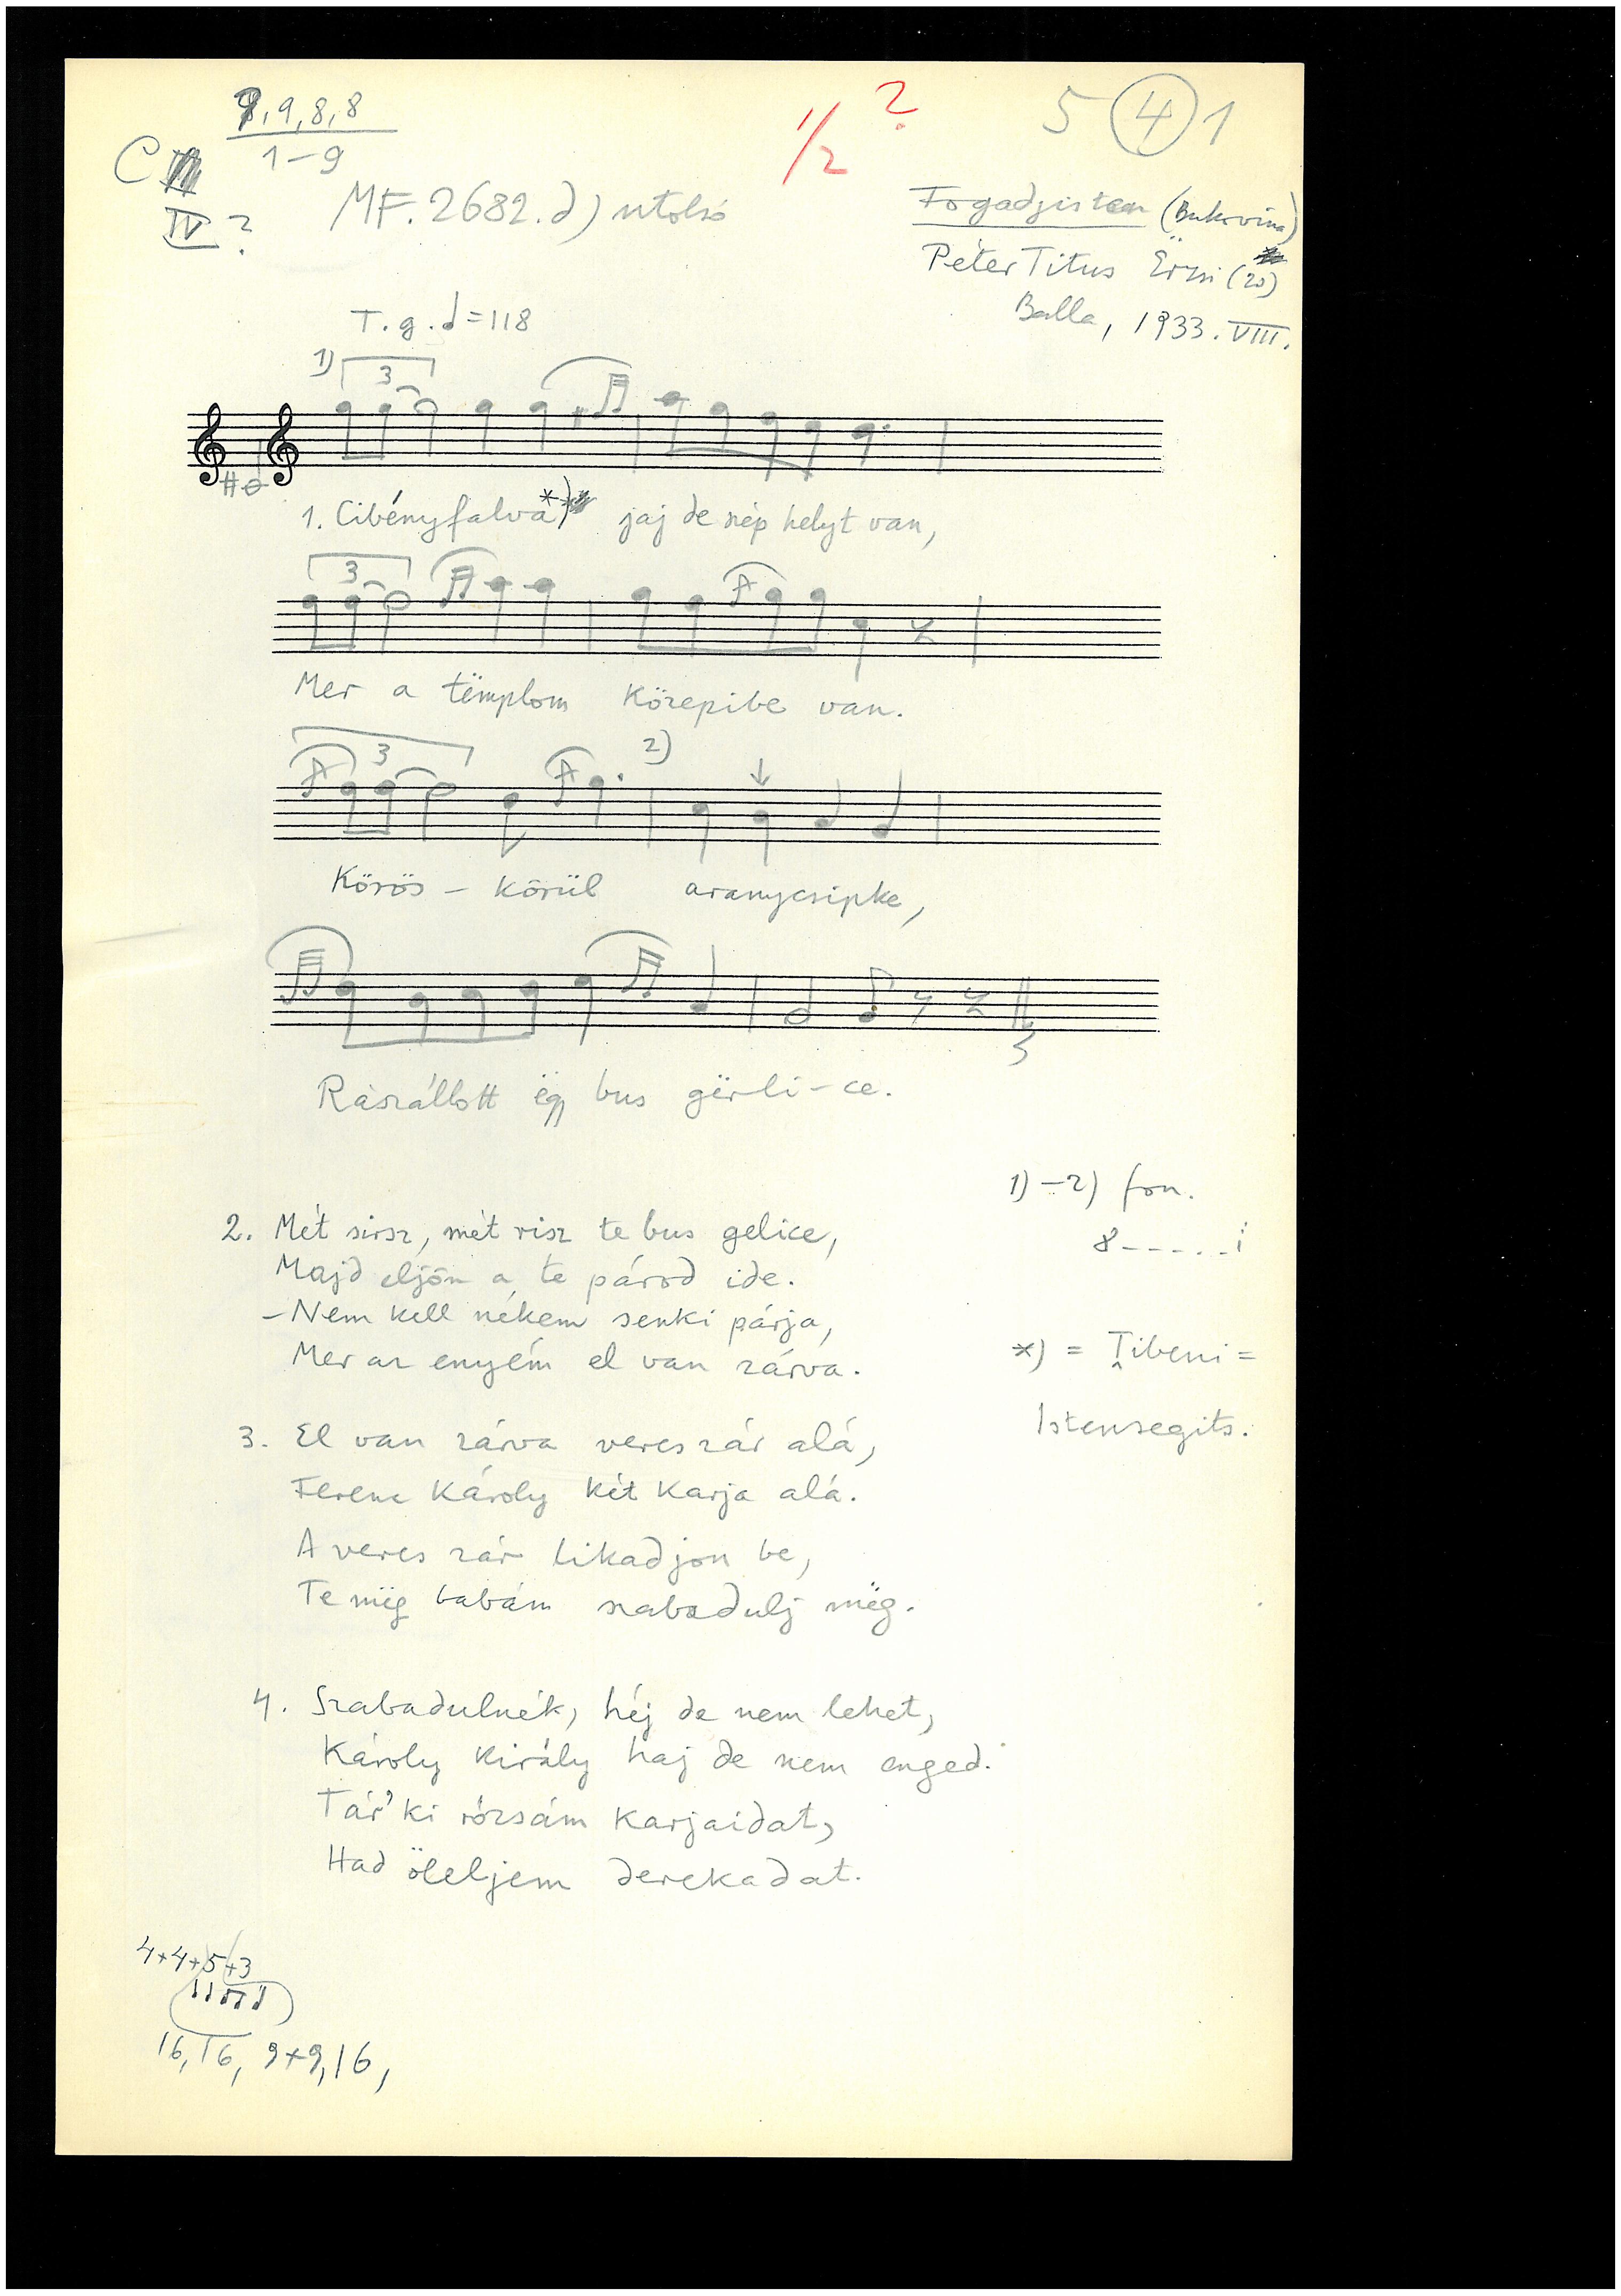 9,9,8,8
1-9
C
IV ?
1/2 ?
5 4 1
MF. 2682. d) utolsó
Fogadjisten (Bukovina)
Péter Titus Ërzsi (20)
Balla, 1933. VIII.
T. g. ♩=118
1) 3
1. Cibényfalva *) jaj de szép helyt van,
3
Mer a tëmplom közepibe van.
3 2)
Körös - körül aranycsipke,
Rászállott ëgy bus gërli-ce.
1) - 2) fon.
8-----i
2. Mét sirsz, mét risz te bus gelice,
Majd eljön a te párod ide.
- Nem kell nékem senki párja,
Mer az enyém el van zárva.
*) = Țibeni =
Istensegits.
3. El van zárva veres zár alá,
Ferenc Károly két karja alá.
A veres zár likadjon be,
Te mëg babám szabadulj mëg.
4. Szabadulnék, héj de nem lehet,
Károly király haj de nem enged.
Tár' ki rózsám karjaidat,
Had öleljem derekadat.
4+4+5+3
16, 16, 9+9, 16,